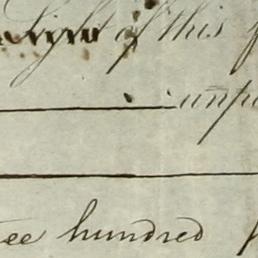 Sight of this
unp
ee hundred